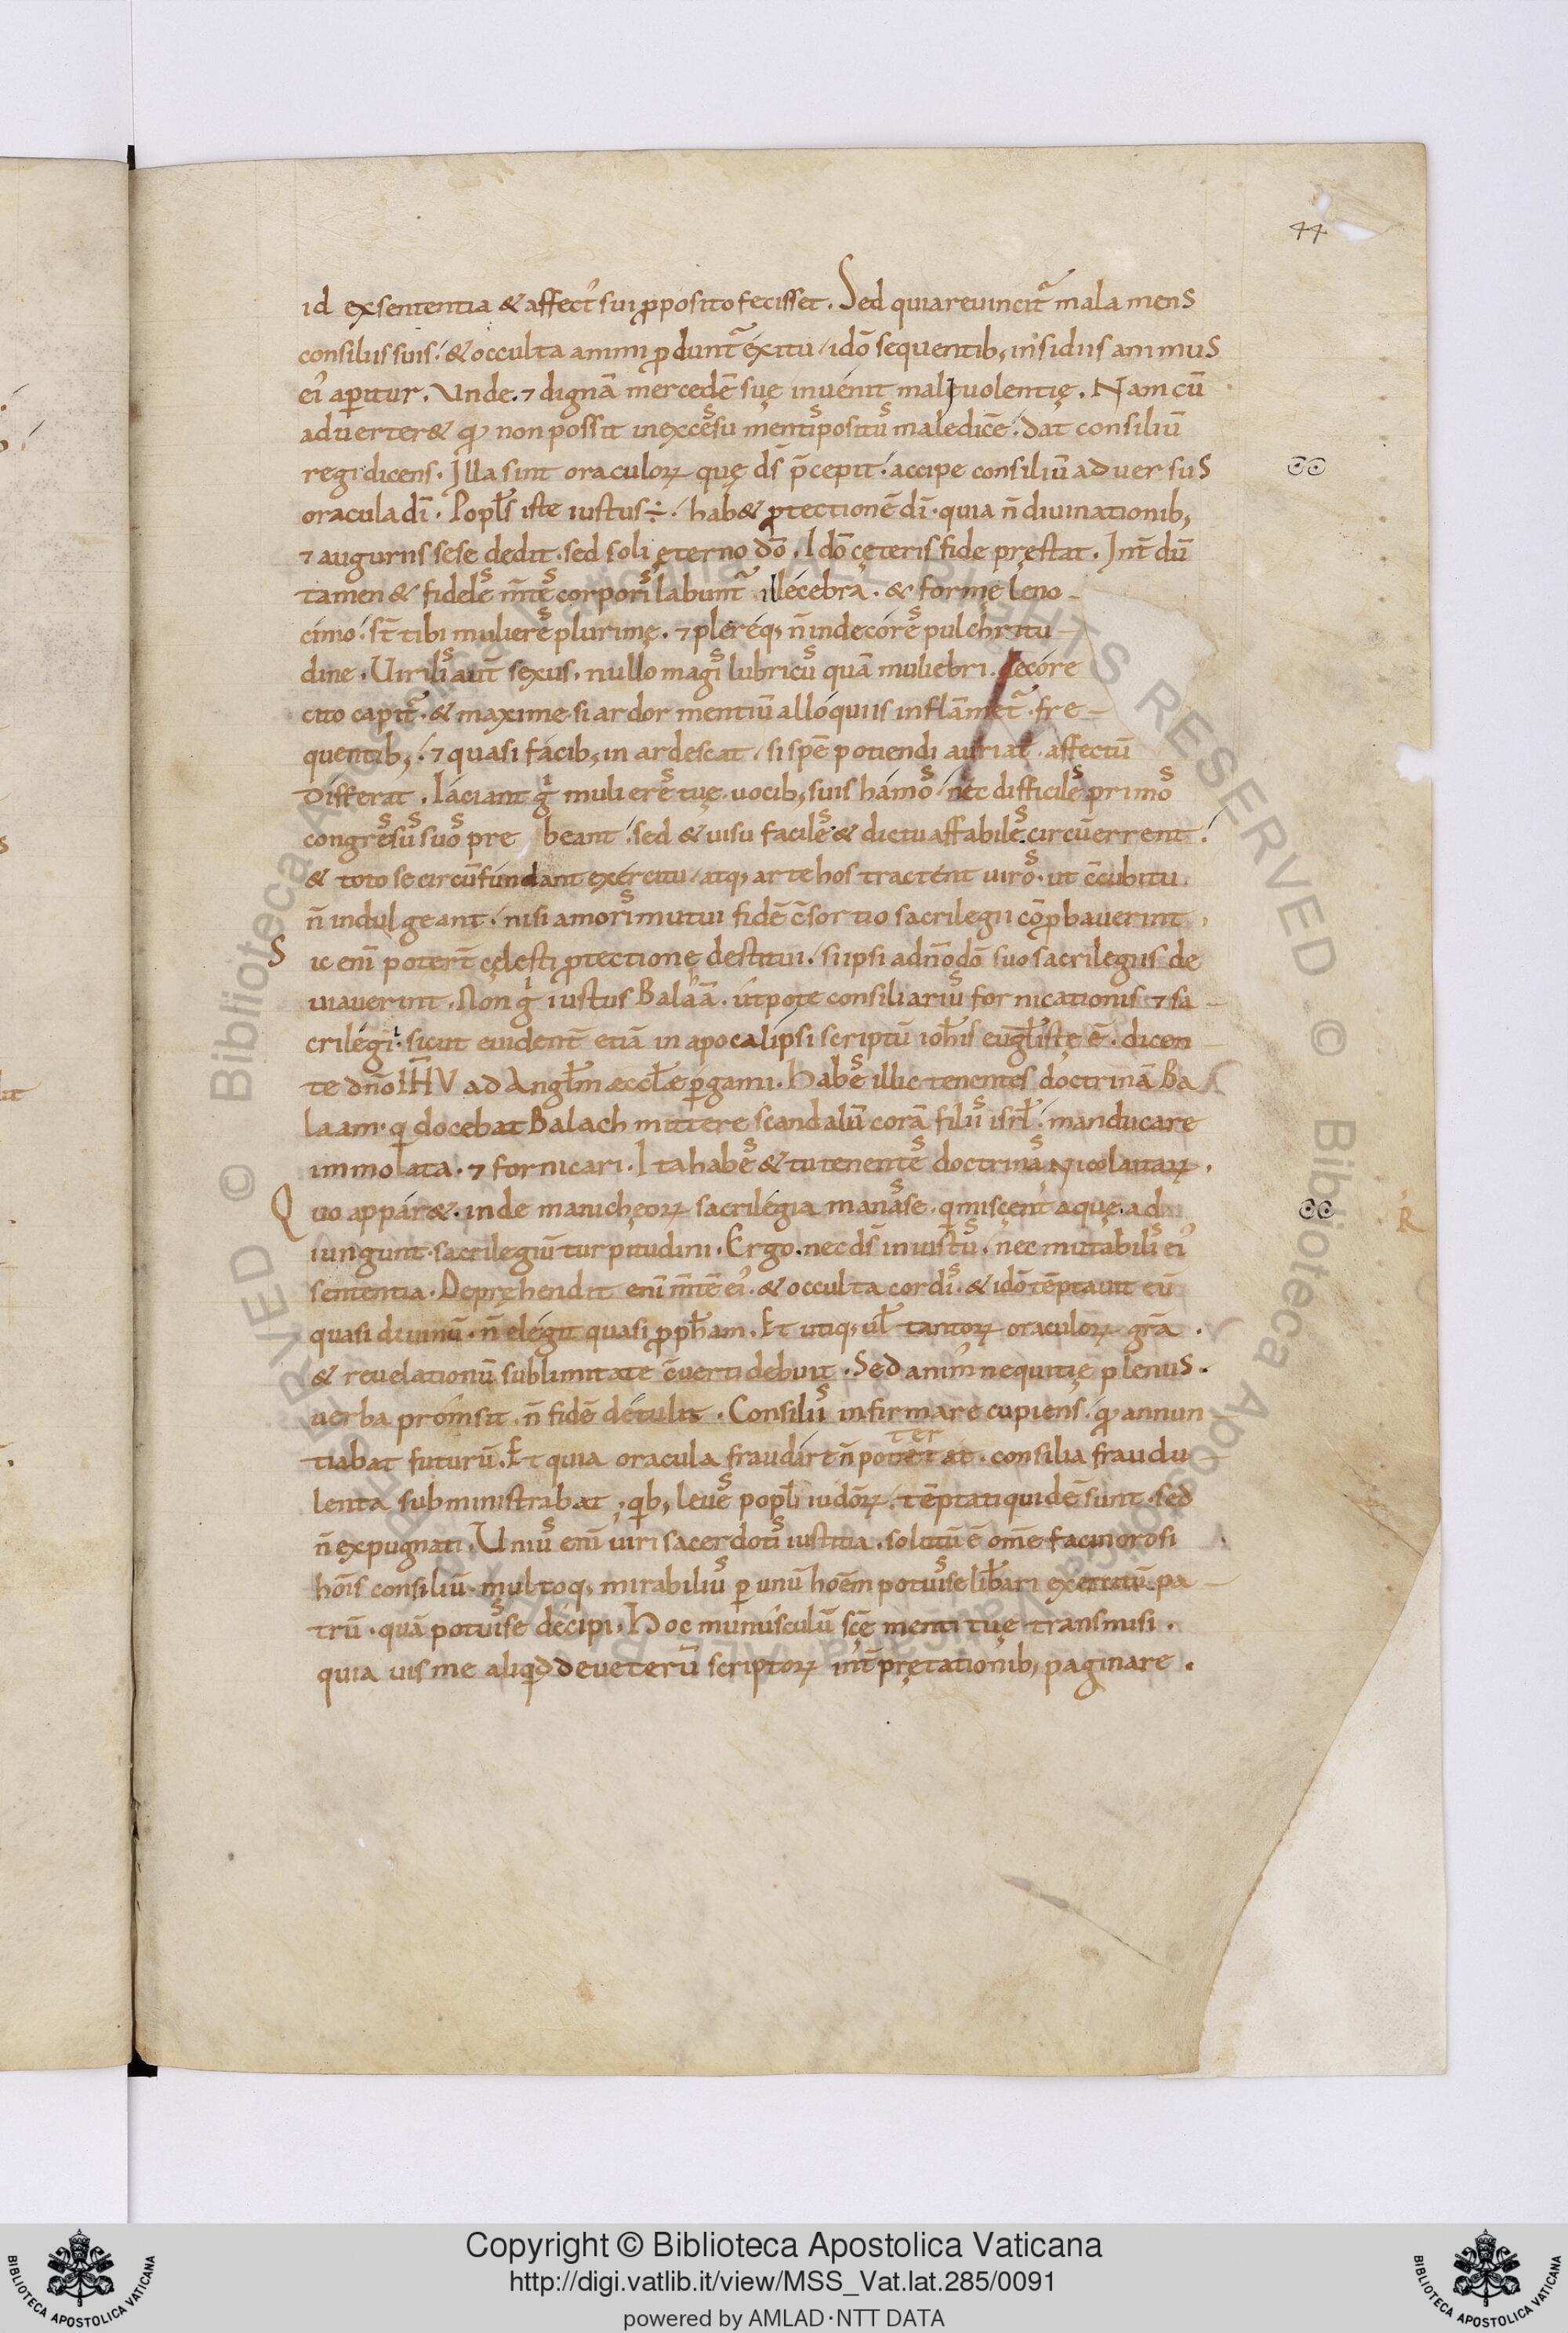 44
id ex sententia & affect᾽ sui p̱posito fecisset. Sed quia reuincit᷑ mala mens
consiliis suis. & occulta animi p̱dunt᷑ éxitu / idō sequentib; insidiis animus
ei᾽ ap̱itur. Vnde. ⁊ dignā mercedē suę inuénit maliuolentię. Nam cū
aduerter& qđ non possit in excēsˢu mentiˢ positūˢ maledicē. dat consiliū
regi dicens. Illa sint oraculoꝝ quę ds̄ p̄cepit. accipe consiliū aduersus
oracula dī. Popl̄s iste iustus ÷. hab& p̱tectionē dī. quia n̄ diuinationib;
⁊ auguriis sese dedit. sed soli ęterno dō. Idō cęteris fide pręstat. Int̄dū
tamen & fideleˢ m̄teˢ corporiˢ labunt᷑ illécebra. & formę leno-
cinio. st̄ tibi muliereˢ plurimę. ⁊ pleréq; n̄ indecóreˢ pulchritu-
dine. Viriliˢ aut̄ sexus. nullo magiˢ lubricuˢ quā muliebri decóre
cito capit᷑. & maxime si ardor mentiū allóquiis inflām&᷑ fre-
quentib;. ⁊ quasi fácib; in ardescat / si spē potiendi auriat affectū
differat. Iáciant gⁱ muliereˢ tuę uocib; suis hámoˢ / néc difficileˢ primoˢ
congreˢsuˢ suoˢ pre beant. sed & uisu facileˢ & dictu affabileˢ circūerrent.
& toto se circūfúndant exércitu / atq; arte hos tractént uiroˢ. ut c̄cubitu
n̄ indulgeant. nisi amoriˢ mutui fidē c̄sortio sacrilegii cōp̱bauerint.
Sic enī potert̄ cęlesti p̱tectionę destitui. si ipsi adn̄o dō suo sacrilegiis de
uiauerint. Non gⁱ iustus Balaā. útpote consiliariuˢ fornicationis ⁊ sa-
crilégi. sicut euident̄ etiā in apocalipsi scriptū ioh̄is eūgl̄istę ē. dicen-
te dn̄o IHV ad Angl̄m æccl̄æ p̱gami. Habeˢ illic tenentes doctrinā Ba
laam. qⁱ docebat Balach mittere scandalū corā filiiˢ isrl̄. manducare
immolata. ⁊ fornicari. Ita habeˢ & tu tenenteˢ doctrināˢ Nicolaitaꝝ.
Quo appár&. inde manichęoꝝ sacrilégia manaˢse. qⁱ miscent aquę ad
iungunt sacrilegiū turpitudini. Ergo. nec ds̄ iniustuˢ. nec mutabiliˢ ei᾽
sententia. Depręhendit enī m̄tē ei᾽. & occulta cordiˢ. & idō tēptauit eū
quasi diuinū. n̄ elégit quasi p̱ph̄am. Et utiq; ul̄ tantoꝝ oraculoꝝ gr̄a.
& reuelationū sublimitate c̄uerti debuit. Sed anim᾽ nequitię plenus.
uerba prómsit. n̄ fidē détulit. Consiliūˢ infirmare cupiens. qđ annun
tiabat futurū. Et quia oracula fraudáre n̄ poterat. consilia fraudu-
ter
lenta subministrabat. qb; leueˢ popl̄i iudōꝝ. tēptati quidē sunt. sed
n̄ expugnati. Vniuˢ enī uiri sacerdotiˢ iustitia. solutū ē om̄e facinorosi
hōis consiliū. multoq; mirabiliuˢ p̱ unū hōem potuiˢse lib̄ari exercitū pa-
trū. quā potuiˢse décipi. Hoc munúsculū scę̄ menti tuę transmisi.
quia uis me aliqđ de ueterū scriptoꝝ int̄prętationib; paginare.
R
Copyright © Biblioteca Apostolica Vaticana
http://digi.vatlib.it/view/MSS_Vat.lat.285/0091
powered by AMLAD·NTT DATA
BIBLIOTECA APOSTOLICA VATICANA
BIBLIOTECA APOSTOLICA VATICANA